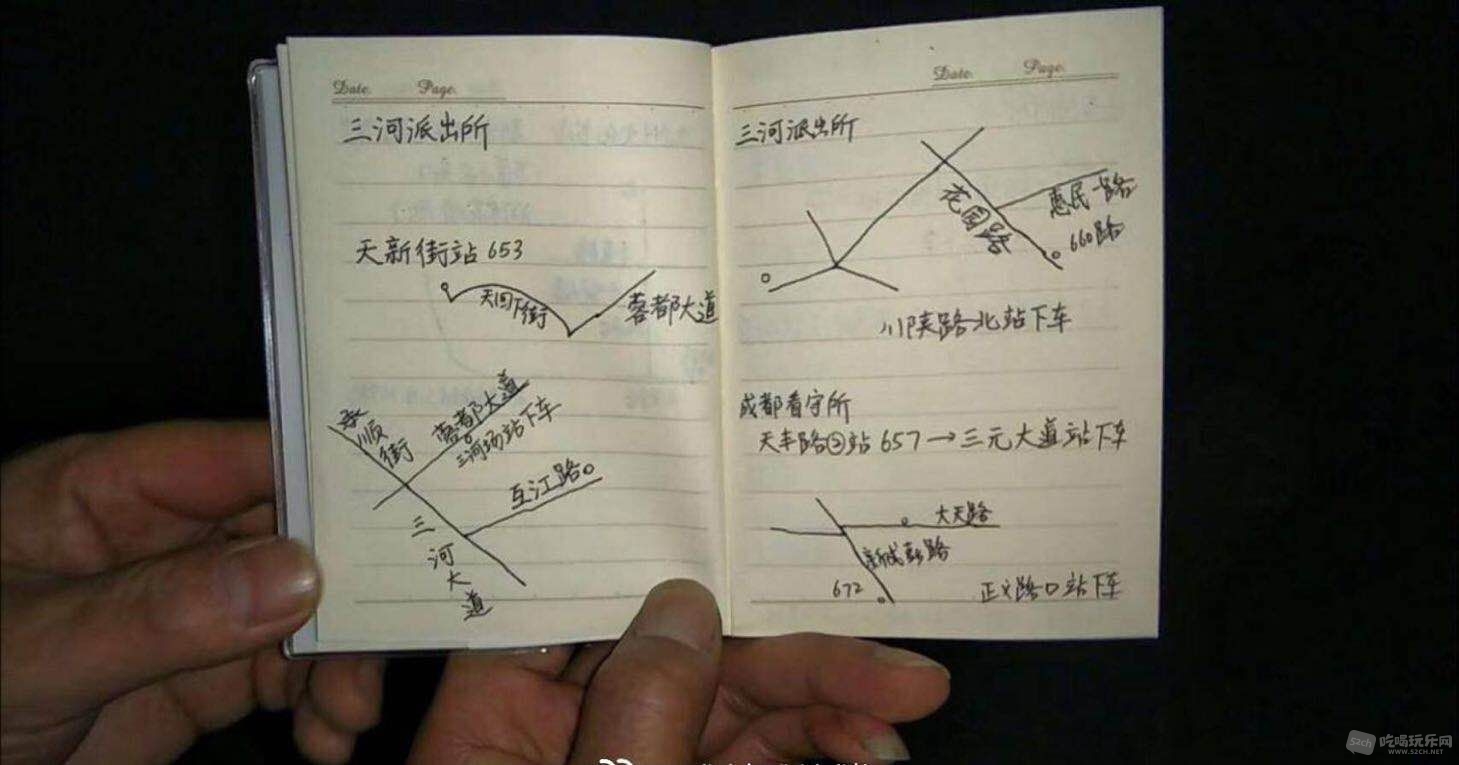 Date. Page.
三河派出所
天新街站 653
天回下街
蓉都大道
顺街
蓉都大道
三河场站下车
互江路
三河大道
Date. Page.
三河派出所
花园路
惠民一路
660路
川陕路北站下车
成都看守所
天丰路②站 657→三元大道站下车
大天路
新成彭路
672
正义路口站下车
52ch 吃喝玩乐网
WWW.52CH.NET